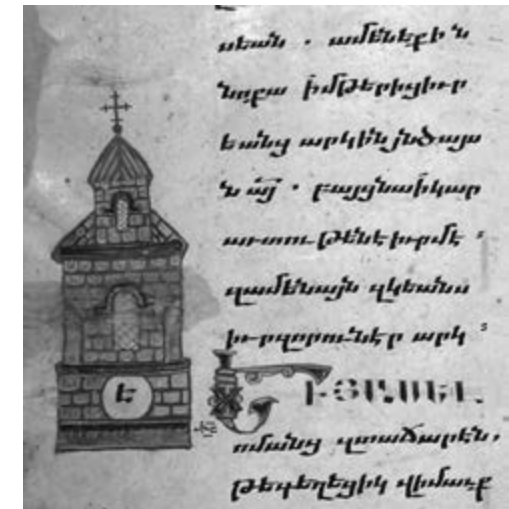 սեան . ամենեքին
նոքա ի մթերից իւր
եանց արկին յնծայս
ն այ . բայց նա ի կար
աւտութենէ իւրմէ :
զամենայն զկեանս
իւր զոր ունէր արկ :
ԵՒ ՅԱՍԵԼ
ե
ոմանց զտաճարէն,
թե գեղեցիկ վիմաւք